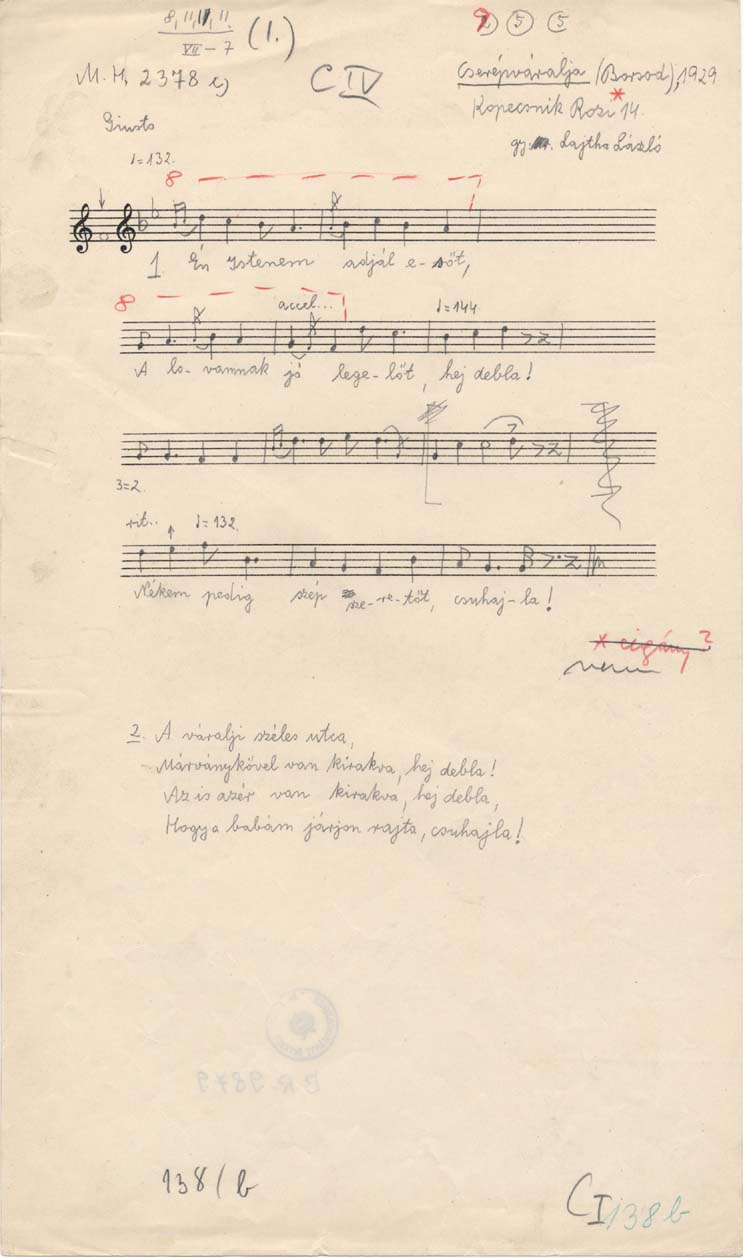 8, 11, 11, 11.
VII – 7
(1.)
9 2 5 5
M. H. 2378 c)
C IV
Cserépváralja (Borsod), 1929
Kopecsnik Rozi * 14.
gy. Lajtha László
Giusto
♩=132.
8
1. Én Istenem adjál e-sőt,
8
accel...
♩=144
A lo-vamnak jó lege-lőt, hej debla!
3=2.
rit..
♩=132.
Nékem pedig szép sze-re-tőt, csuhaj-la!
* cigány?
nem
2. A váralji széles utca,
Márványkővel van kirakva, hej debla!
Az is azér van kirakva, hej debla,
Hogy a babám járjon rajta, csuhajla!
138/b
C I 138b